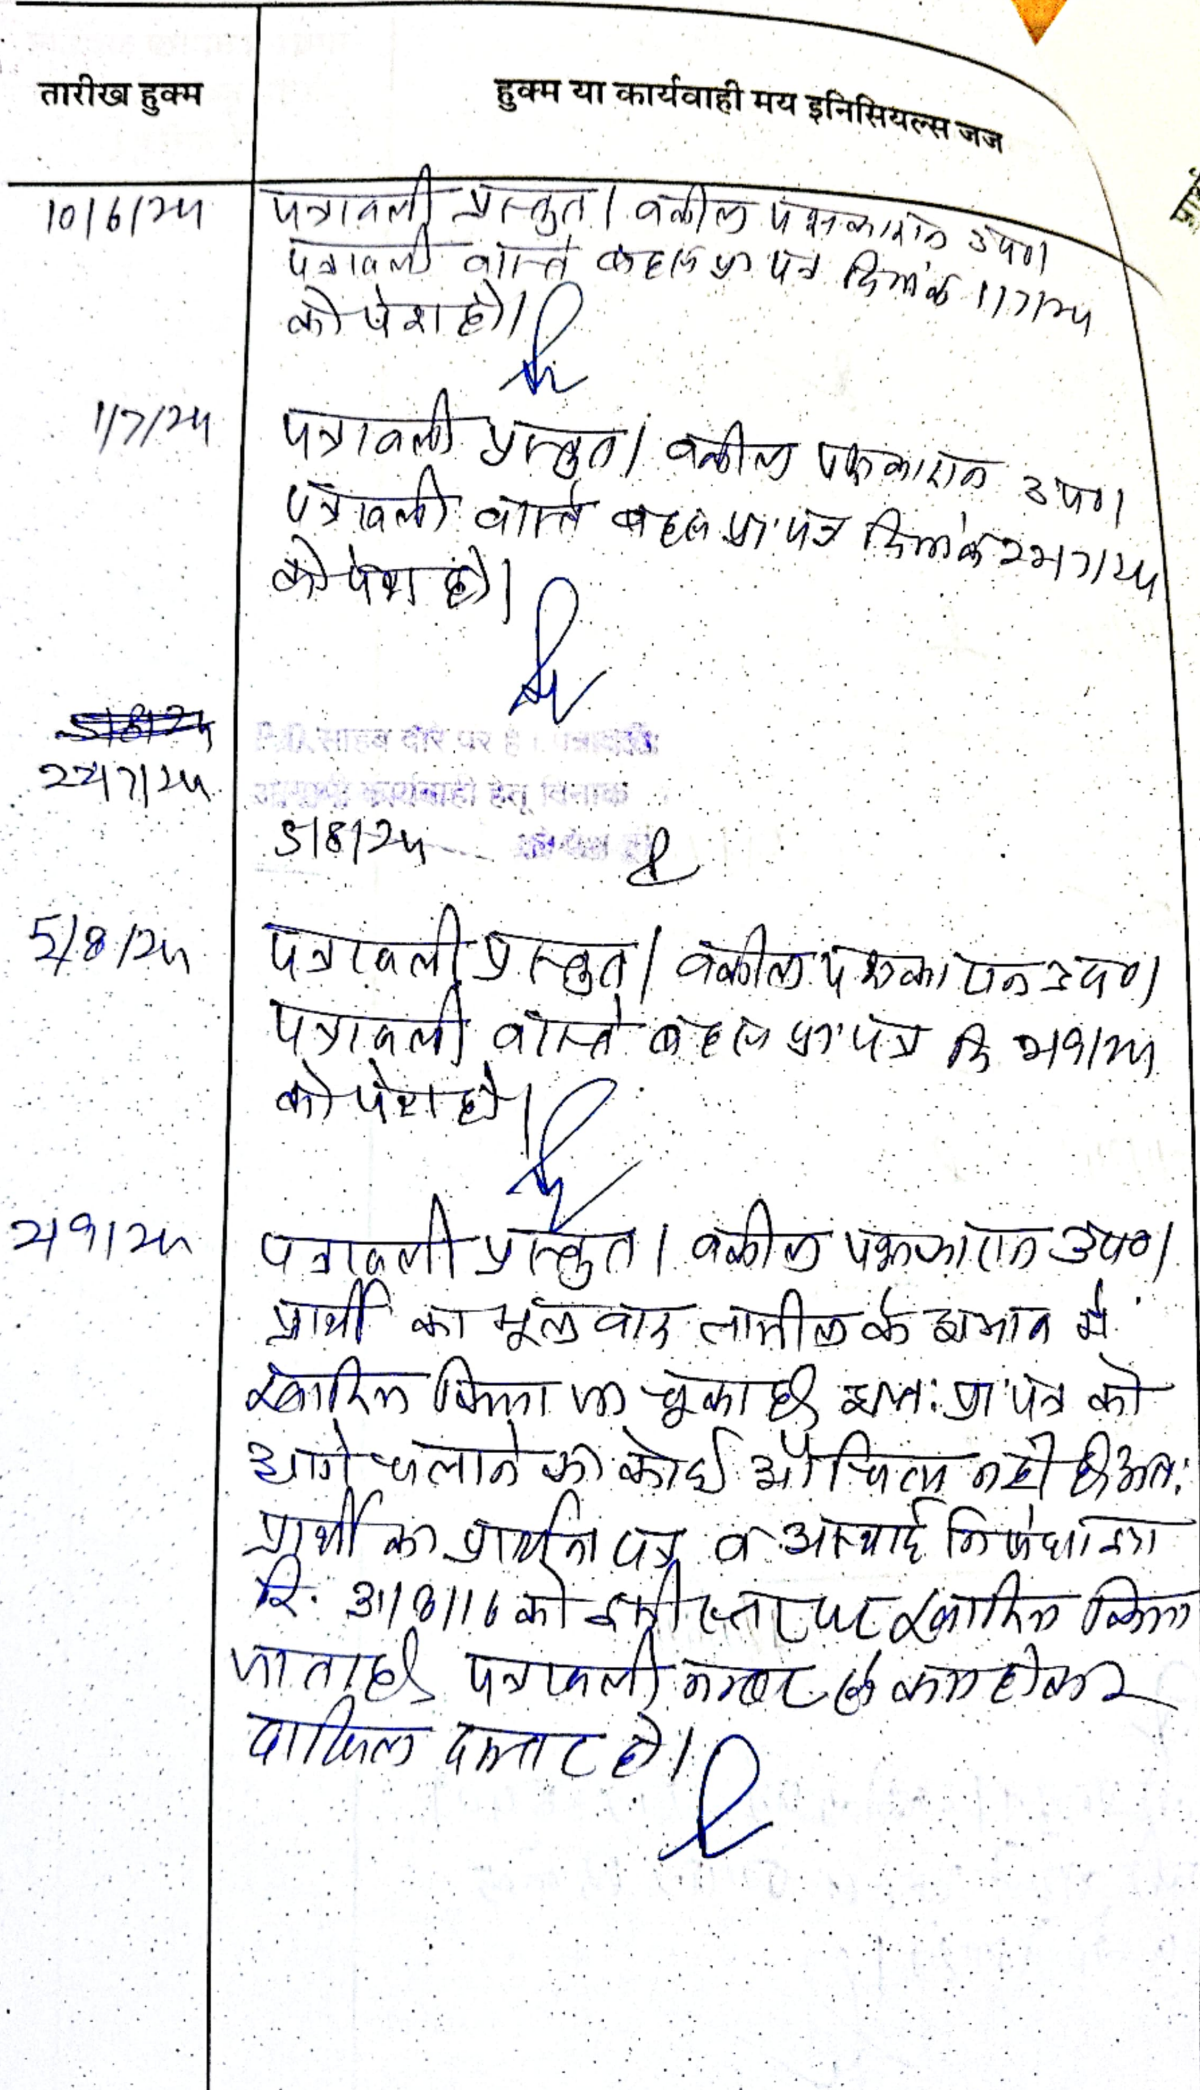 तारीख हुक्म
हुक्म या कार्यवाही मय इनिसियल्स जज
10/6/24
पत्रावली प्रस्तुत। वकील पक्षकारान उप०।
पत्रावली वास्ते बहस प्रा. पत्र दिनांक 1/7/24
को पेश हो।
1/7/24
पत्रावली प्रस्तुत। वकील पक्षकारान उप०।
पत्रावली वास्ते बहस प्रा. पत्र दिनांक 22/7/24
को पेश हो।
5/8/24
22/7/24
5/8/24
5/8/24
पत्रावली प्रस्तुत। वकील पक्षकारान उप०।
पत्रावली वास्ते बहस प्रा. पत्र दि 2/9/24
को पेश हो।
2/9/24
पत्रावली प्रस्तुत। वकील पक्षकारान उप०।
प्रार्थी का मूल वाद तामील के अभाव में
खारिज किया जा चूका है अतः प्रा. पत्र को
आगे चलाने का कोई औचित्य नही है अतः
प्रार्थी का प्रार्थना पत्र व अस्थाई निषेधाज्ञा
दि. 31/8/16 को इसी स्तर पर खारिज किया
जाता है पत्रावली नम्बर से कम होकर
दाखिल दफ्तर हो।